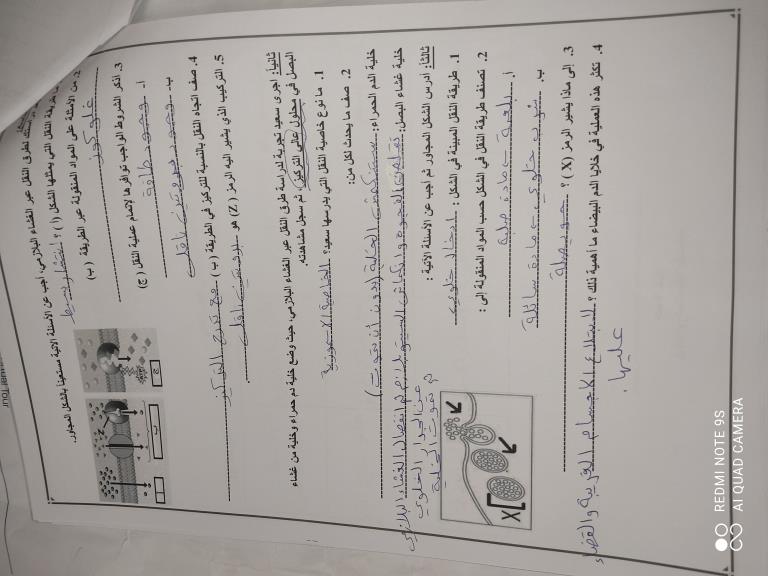 أمثلة لطرق النقل عبر الغشاء البلازمي، أجب عن الأسئلة الآتية مستعينا بالشكل المجاور.
طريقة النقل التي يمثلها الشكل (أ)؟ انتشار بسيط
2. من الأمثلة على المواد المنقولة عبر الطريقة (ب)
غلوكوز
3. اذكر الشروط الواجب توافرها لإتمام عملية النقل (ج)
أ- وجود طاقة
ب- وجود بروتين ناقل
4. صف اتجاه النقل بالنسبة للتركيز في الطريقة (ب) مع تدرج التركيز
5. التركيب الذي يشير اليه الرمز (Z) هو بروتين ناقل
أ
ب
ج
Z
ثانياً: اجرى سعيد تجربة لدراسة طرق النقل عبر الغشاء البلازمي، حيث وضع خلية دم حمراء وخلية من غشاء
البصل في محلول عالي التركيز، ثم سجل مشاهدته.
1. ما نوع خاصية النقل التي يدرسها سعيد؟ الخاصية الاسموزية
2. صف ما يحدث لكل من:
خلية الدم الحمراء: ستنكمش الخلية (بدون ان تموت)
خلية غشاء البصل: تقلص الفجوة وانكماش السيتوبلازم ثم انفصال الغشاء البلازمي
عن الجدار الخلوي
ثم تموت الخلية
ثالثاً: ادرس الشكل المجاور ثم اجب عن الأسئلة الآتية:
1. طريقة النقل المبينة في الشكل: ادخال خلوي
2. تصنف طريقة النقل في الشكل حسب المواد المنقولة إلى:
أ. بلعمة - مادة صلبة
ب. شرب خلوي - مادة سائلة
3. إلى ماذا يشير الرمز (X)؟ حويصلة
4. تكثر هذه العملية في خلايا الدم البيضاء ما اهمية ذلك؟ لابتلاع الاجسام الغريبة والقضاء
عليها.
X
REDMI NOTE 9S
AI QUAD CAMERA